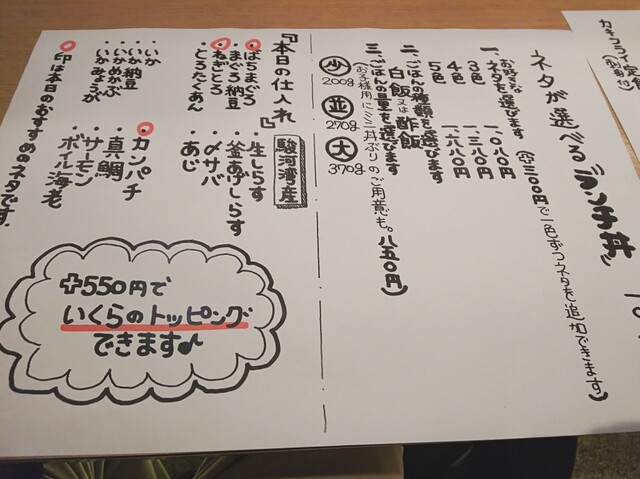 ネタが選べる『ランチ丼』
一、お好きなネタを選びます (⊕三〇〇円で一色ずつネタを追加できます)
3色 一、〇八〇円
4色 一、三八〇円
5色 一、六八〇円
二、ごはんの種類を選びます
白飯又は酢飯
三、ごはんの量を選びます
(お子様用にミニ丼ぶりのご用意も。八五〇円)
少 200g
並 270g
大 370g
『本日の仕入れ』
・ばちまぐろ
・まぐろ納豆
・ねぎとろ
・とろたくあん
駿河湾産
・生しらす
・釜あげしらす
・〆サバ
・あじ
・いか
・いか納豆
・いかめかぶ
・いかみょうが
・カンパチ
・真鯛
・サーモン
・ボイル海老
○印は本日のおすすめのネタです。
✚550円で
いくらのトッピング
できます♪
カキフライ定食